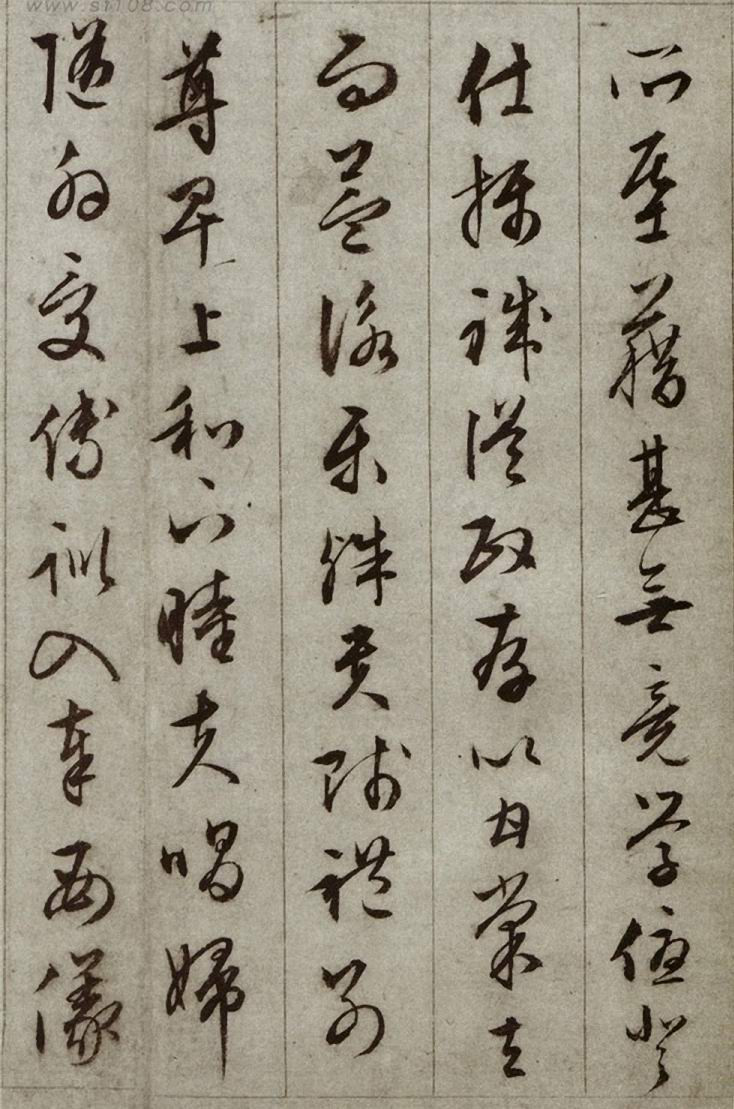 www.sf108.com
所基籍甚無竟學優登
仕攝職從政存以甘棠去
而益詠樂殊貴賤禮別
尊卑上和下睦夫唱婦
隨外受傅訓入奉母儀